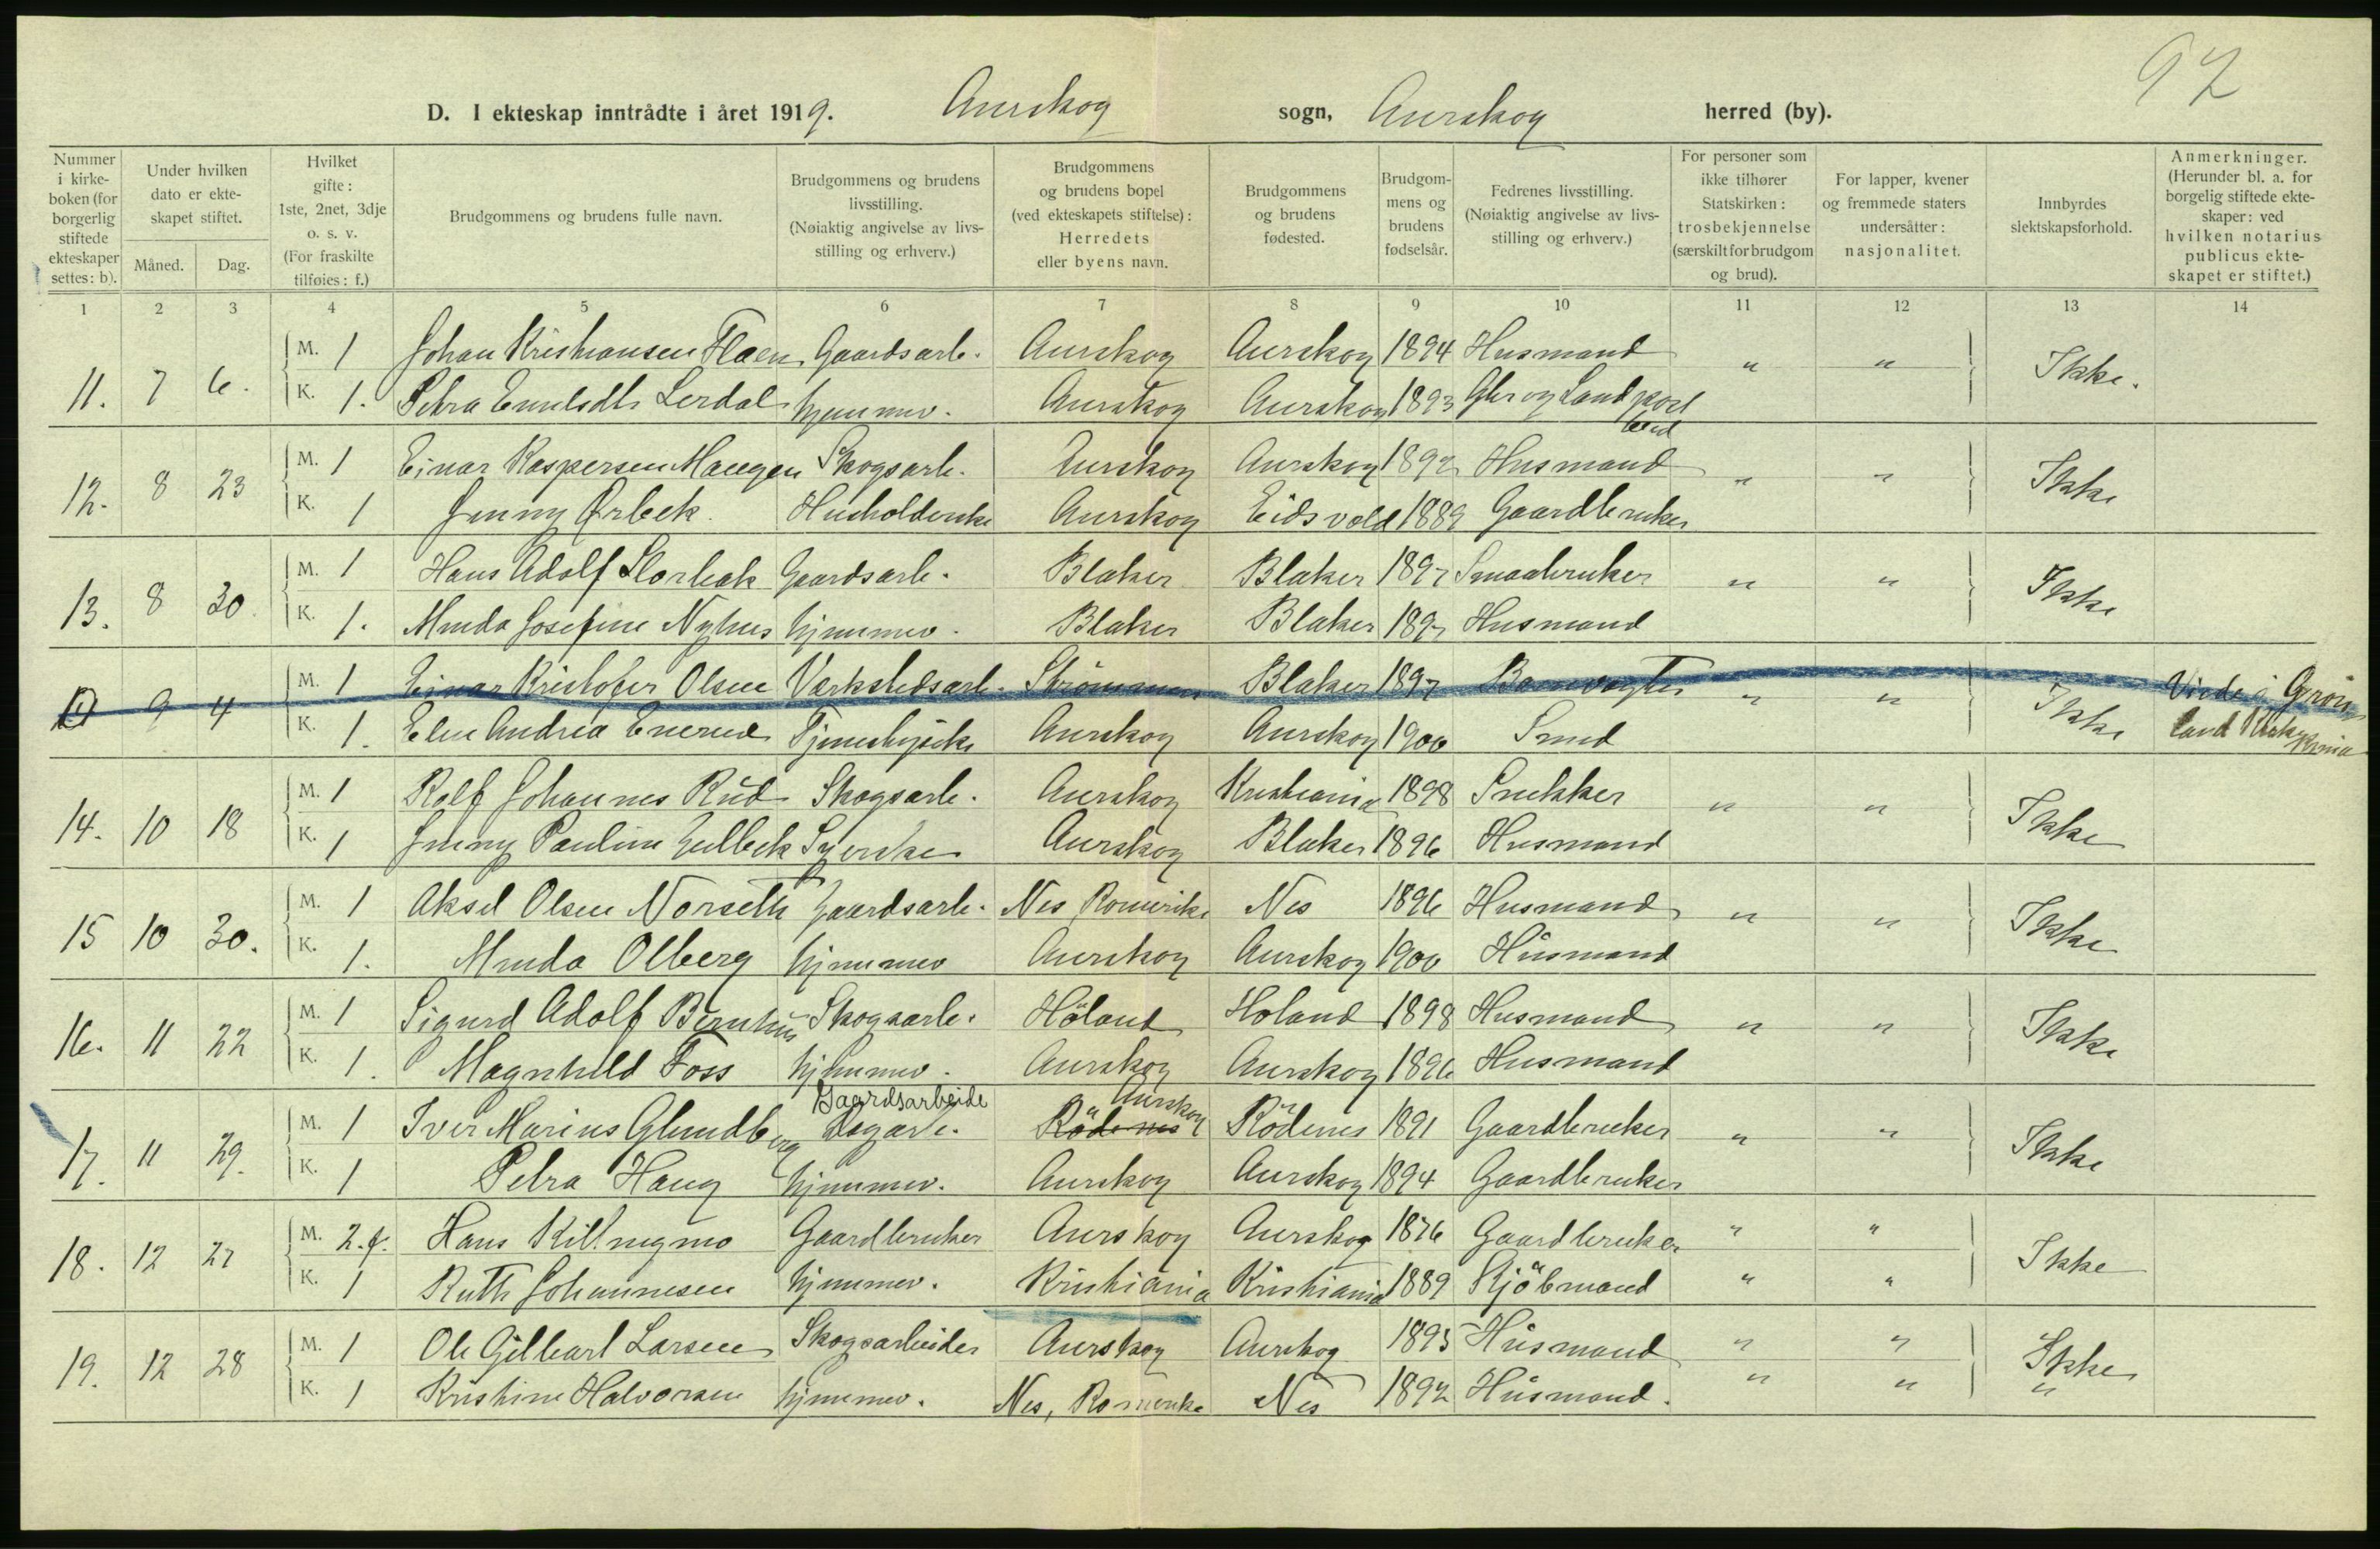 92
D. I ekteskap inntrådte i året 1919. Aurskog sogn, Aurskog herred (by).
Nummer i kirke-boken (for borgerlig stiftede ekteskaper settes: b). Under hvilken dato er ekte-skapet stiftet. Måned. Dag. Hvilket gifte: 1ste, 2net, 3dje o. s. v. (For fraskilte tilføies: f.) Brudgommens og brudens fulle navn. Brudgommens og brudens livsstilling. (Nøiaktig angivelse av livs-stilling og erhverv.) Brudgommens og brudens bopel (ved ekteskapets stiftelse): Herredets eller byens navn. Brudgommens og brudens fødested. Brudgom-mens og brudens fødselsår. Fedrenes livsstilling. (Nøiaktig angivelse av livs-stilling og erhverv.) For personer som ikke tilhører Statskirken: trosbekjennelse (særskilt for brudgom og brud). For lapper, kvener og fremmede staters undersåtter: nasjonalitet. Innbyrdes slektskapsforhold. Anmerkninger. (Herunder bl. a. for borgerlig stiftede ekte-skaper: ved hvilken notarius publicus ekte-skapet er stiftet.)
1 2 3 4 5 6 7 8 9 10 11 12 13 14
11. 7 6. M. 1 Johan Kristiansen Flaen Gaardsarb. Aurskog Aurskog 1894 Husmand " " Ikke.
K. 1. Petra Emilsdtr Lerdal hjemmev. Aurskog Aurskog 1893 Gbr og Landpost bud
12. 8 23 M. 1 Einar Kaspersen Haugen Skogsarb. Aurskog Aurskog 1892 Husmand " " Ikke
K. 1 Jenny Ørbek. Husholderske Aurskog Eidsvold 1889 Gaardbruker
13. 8 30. M. 1 Hans Adolf Storbak Gaardsarb. Blaker Blaker 1897 Smaabruker " " Ikke
K. 1. Minda Josefine Nyhus hjemmev. Blaker Blaker 1897 Husmand
9 4 M. 1 Einar Kristofer Olsen Værkstedsarb. Strømmen Blaker 1897 Banevogter " " Ikke Viede i Grön
K. 1. Elen Andrea Enerud Tjenestepike Aurskog Aurskog 1900 Smed land Kirke Kr.nia
14. 10 18 M. 1 Rolf Johannes Rud Skogsarb. Aurskog Kristiania 1898 Snekker " " Ikke
K. 1 Jenny Pauline Gulbek Syerske Aurskog Blaker 1896 Husmand
15 10 30. M. 1 Aksel Olsen Norseth Gaardsarb. Nes Romerike Nes 1896 Husmand " " Ikke
K. 1. Minda Olberg hjemmev Aurskog Aurskog 1900 Husmand
16. 11 22 M. 1 Sigurd Adolf Bernhus Skogsarb. Höland Höland 1898 Husmand " " Ikke
K. 1. Magnhild Foss hjemmev. Aurskog Aurskog 1896 Husmand
Gaardsarbeide Aurskog
17. 11 29. M. 1 Iver Marius Glundberg Dagarb. Rödenes Rödenes 1891 Gaardbruker " " Ikke
K. 1 Petra Haug hjemmev. Aurskog Aurskog 1894 Gaardbruker
18. 12 27 M. 2.f. Hans Killingmo Gaardbruker Aurskog Aurskog 1876 Gaardbruker " " Ikke
K. 1 Ruth Johannesen hjemmev. Kristiania Kristiania 1889 Kjöbmand " "
19. 12 28 M. 1 Ole Gilbart Larsen Skogsarbeider Aurskog Aurskog 1895 Husmand " " Ikke
K. 1 Kristine Halvorsen hjemmev. Nes, Romerike Nes 1892 Husmand. " " "